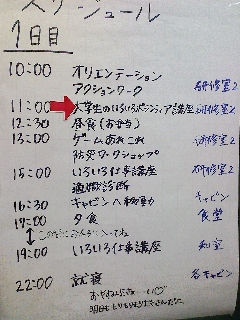 スケジュール
1日目
10:00 オリエンテーション
アクションワーク 研修室2
11:00 大学生のいろいろボランティア講座 研修室2
12:30 昼食(お弁当)
13:00 ゲームあれこれ 研修室2
防災ワークショップ
15:00 いろいろ仕事講座 研修室2
適職診断
16:30 キャビンへ移動 キャビン
17:00 夕食 食堂
19:00 いろいろ仕事講座 和室
22:00 就寝 各キャビン